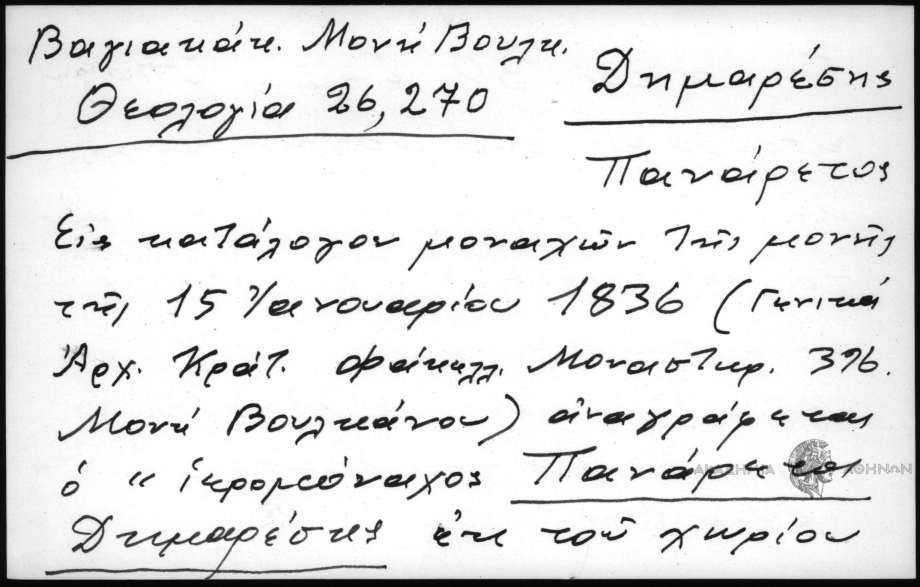 Βαγιακάκ. Μονή Βουλκ.
Θεολογία 26, 270
Δημαρέσης
Πανάρετος
Εἰς κατάλογον μοναχῶν τῆς μονῆς
τῆς 15 Ἰανουαρίου 1836 (Γενικά
Ἀρχ. Κράτ. Φάκελλ. Μοναστηρ. 396.
Μονή Βουλκάνου) ἀναγράφεται
ὁ " ἱερομόναχος Πανάρετος
Δημαρέσης ἐκ τοῦ χωρίου
ΑΚΑΔΗΜΙΑ ΑΘΗΝΩΝ